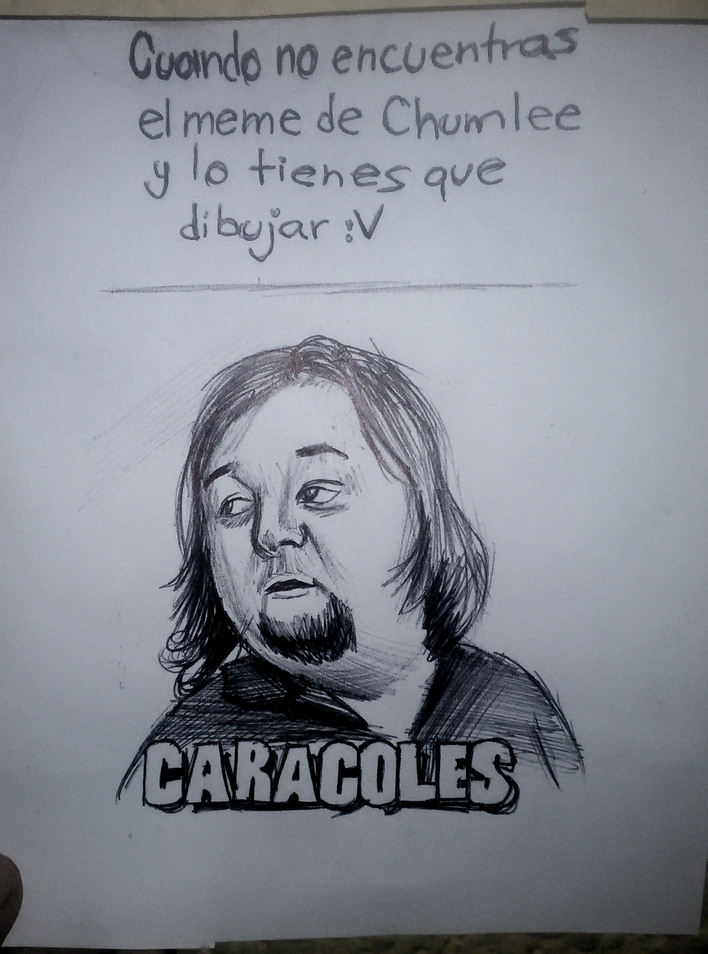 Cuando no encuentras
el meme de Chumlee
y lo tienes que
dibujar :V
CARACOLES